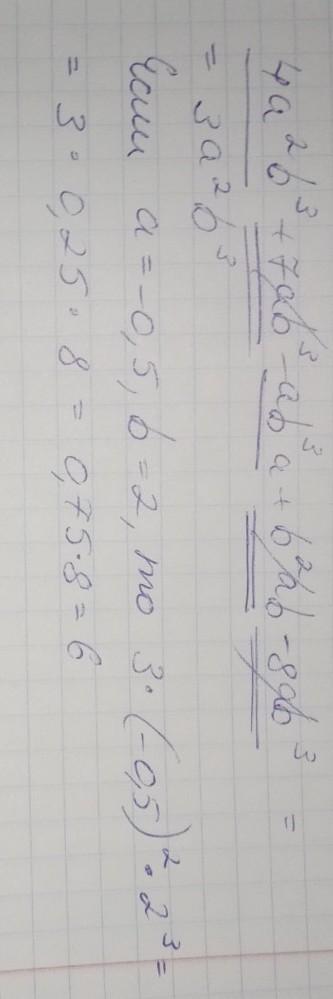 4a²b³ + 7ab³ - ab³a + b²ab - 8ab³ =
= 3a²b³
Если a = -0,5, b = 2, то 3 · (-0,5)² · 2³ =
= 3 · 0,25 · 8 = 0,75 · 8 = 6